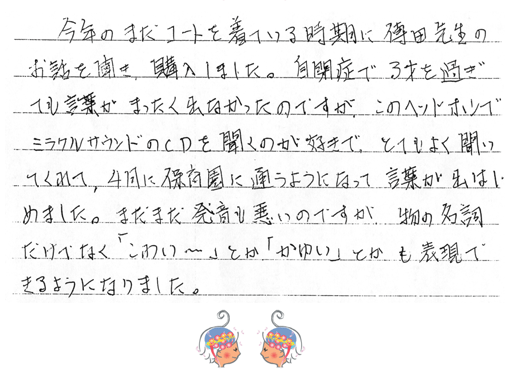 今年のまだコートを着ている時期に傳田先生の
お話を聞き、購入しました。自閉症で3才を過ぎ
ても言葉がまったく出なかったのですが、このヘッドホンで
ミラクルサウンドのCDを聞くのが好きで、とてもよく聞い
てくれて、4月に保育園に通うようになって言葉が出はじ
めました。まだまだ発音も悪いのですが 物の名詞
だけでなく「こわい～」とか「かゆい」とかも表現で
きるようになりました。